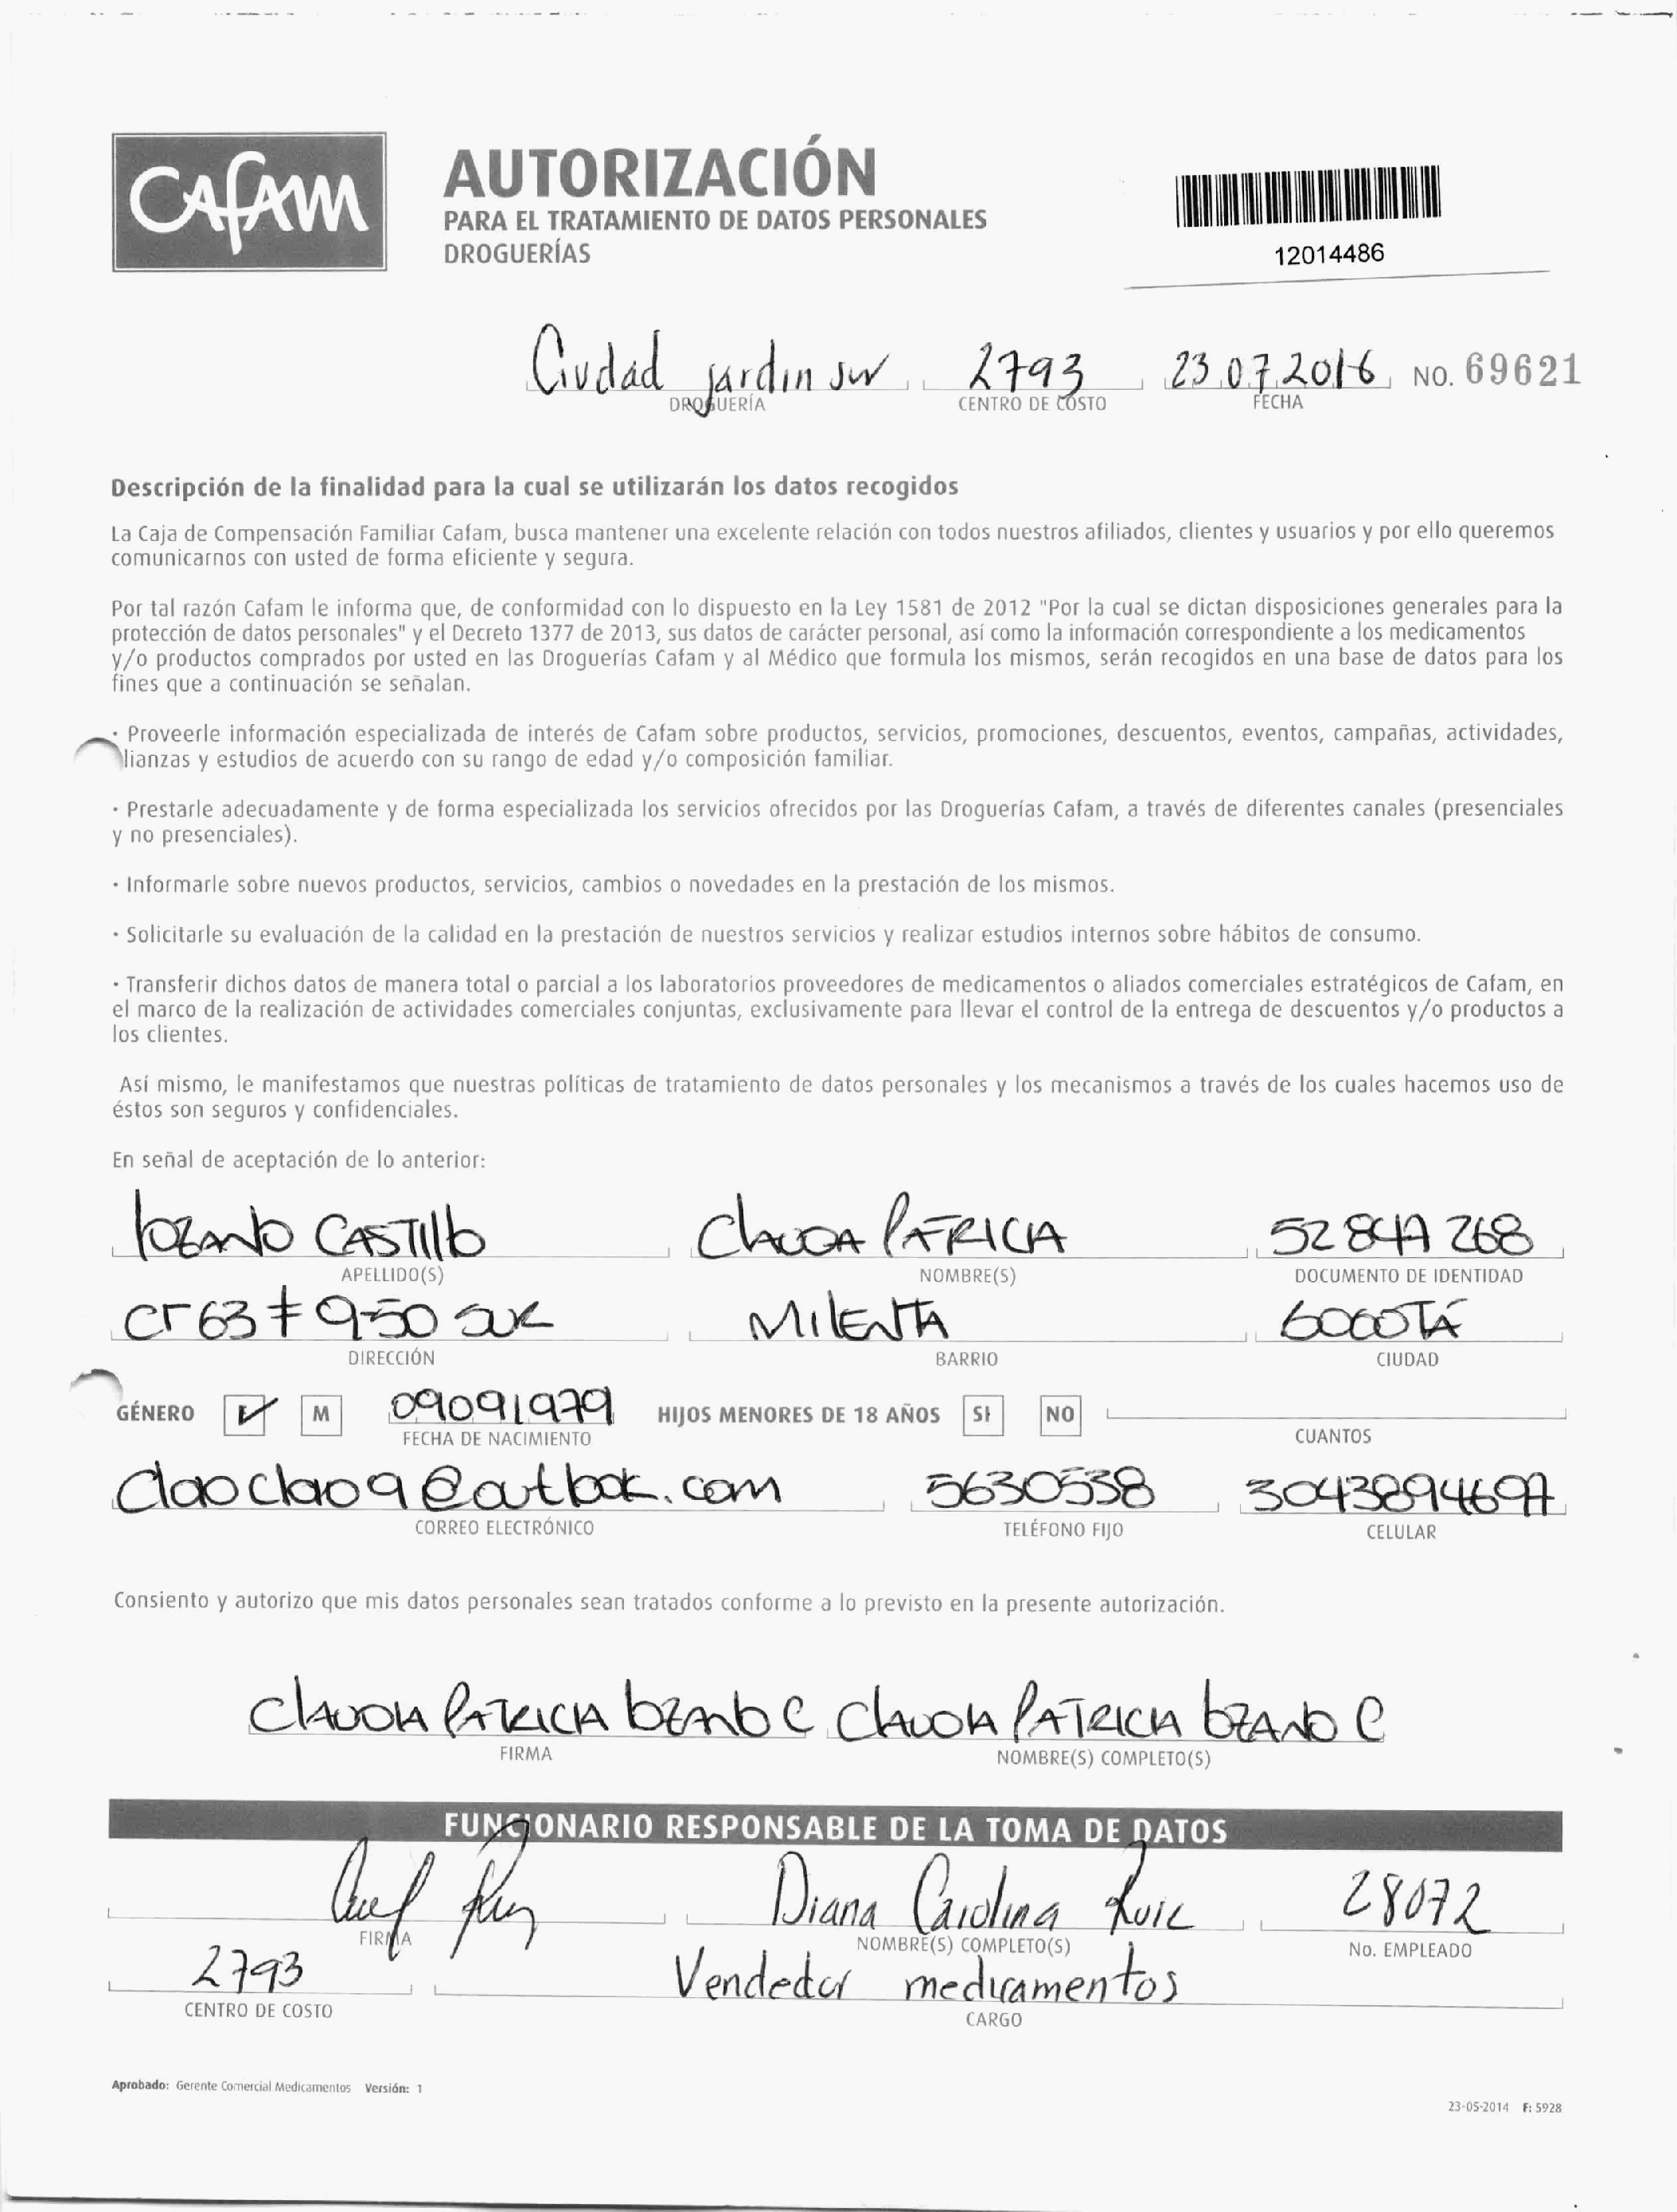 CAFAM
AUTORIZACIÓN
PARA EL TRATAMIENTO DE DATOS PERSONALES
DROGUERÍAS
12014486
Ciudad jardin sur 2793 23.07.2016 NO. 69621
DROGUERÍA CENTRO DE COSTO FECHA
Descripción de la finalidad para la cual se utilizarán los datos recogidos
La Caja de Compensación Familiar Cafam, busca mantener una excelente relación con todos nuestros afiliados, clientes y usuarios y por ello queremos
comunicarnos con usted de forma eficiente y segura.
Por tal razón Cafam le informa que, de conformidad con lo dispuesto en la Ley 1581 de 2012 "Por la cual se dictan disposiciones generales para la
protección de datos personales" y el Decreto 1377 de 2013, sus datos de carácter personal, así como la información correspondiente a los medicamentos
y/o productos comprados por usted en las Droguerías Cafam y al Médico que formula los mismos, serán recogidos en una base de datos para los
fines que a continuación se señalan.
· Proveerle información especializada de interés de Cafam sobre productos, servicios, promociones, descuentos, eventos, campañas, actividades,
lianzas y estudios de acuerdo con su rango de edad y/o composición familiar.
· Prestarle adecuadamente y de forma especializada los servicios ofrecidos por las Droguerías Cafam, a través de diferentes canales (presenciales
y no presenciales).
· Informarle sobre nuevos productos, servicios, cambios o novedades en la prestación de los mismos.
· Solicitarle su evaluación de la calidad en la prestación de nuestros servicios y realizar estudios internos sobre hábitos de consumo.
· Transferir dichos datos de manera total o parcial a los laboratorios proveedores de medicamentos o aliados comerciales estratégicos de Cafam, en
el marco de la realización de actividades comerciales conjuntas, exclusivamente para llevar el control de la entrega de descuentos y/o productos a
los clientes.
Así mismo, le manifestamos que nuestras políticas de tratamiento de datos personales y los mecanismos a través de los cuales hacemos uso de
éstos son seguros y confidenciales.
En señal de aceptación de lo anterior:
lozano CASTIllo ClAUDIA PATRICIA 52 847 268
APELLIDO(S) NOMBRE(S) DOCUMENTO DE IDENTIDAD
cr 63 # 9-50 sur MILENTA BOGOTÁ
DIRECCIÓN BARRIO CIUDAD
GÉNERO F M 09091979 HIJOS MENORES DE 18 AÑOS SI NO
FECHA DE NACIMIENTO CUANTOS
5630538 3043894697
CORREO ELECTRÓNICO TELÉFONO FIJO CELULAR
Consiento y autorizo que mis datos personales sean tratados conforme a lo previsto en la presente autorización.
ClAUDIA PATRICIA lozano C ClAUDIA PATRICIA lOZANO C
FIRMA NOMBRE(S) COMPLETO(S)
FUNCIONARIO RESPONSABLE DE LA TOMA DE DATOS
Diana Carolina Ruiz 28072
FIRMA NOMBRE(S) COMPLETO(S) No. EMPLEADO
2793 Vendedor medicamentos
CENTRO DE COSTO CARGO
Aprobado: Gerente Comercial Medicamentos Versión: 1
23-05-2014 F: 5928